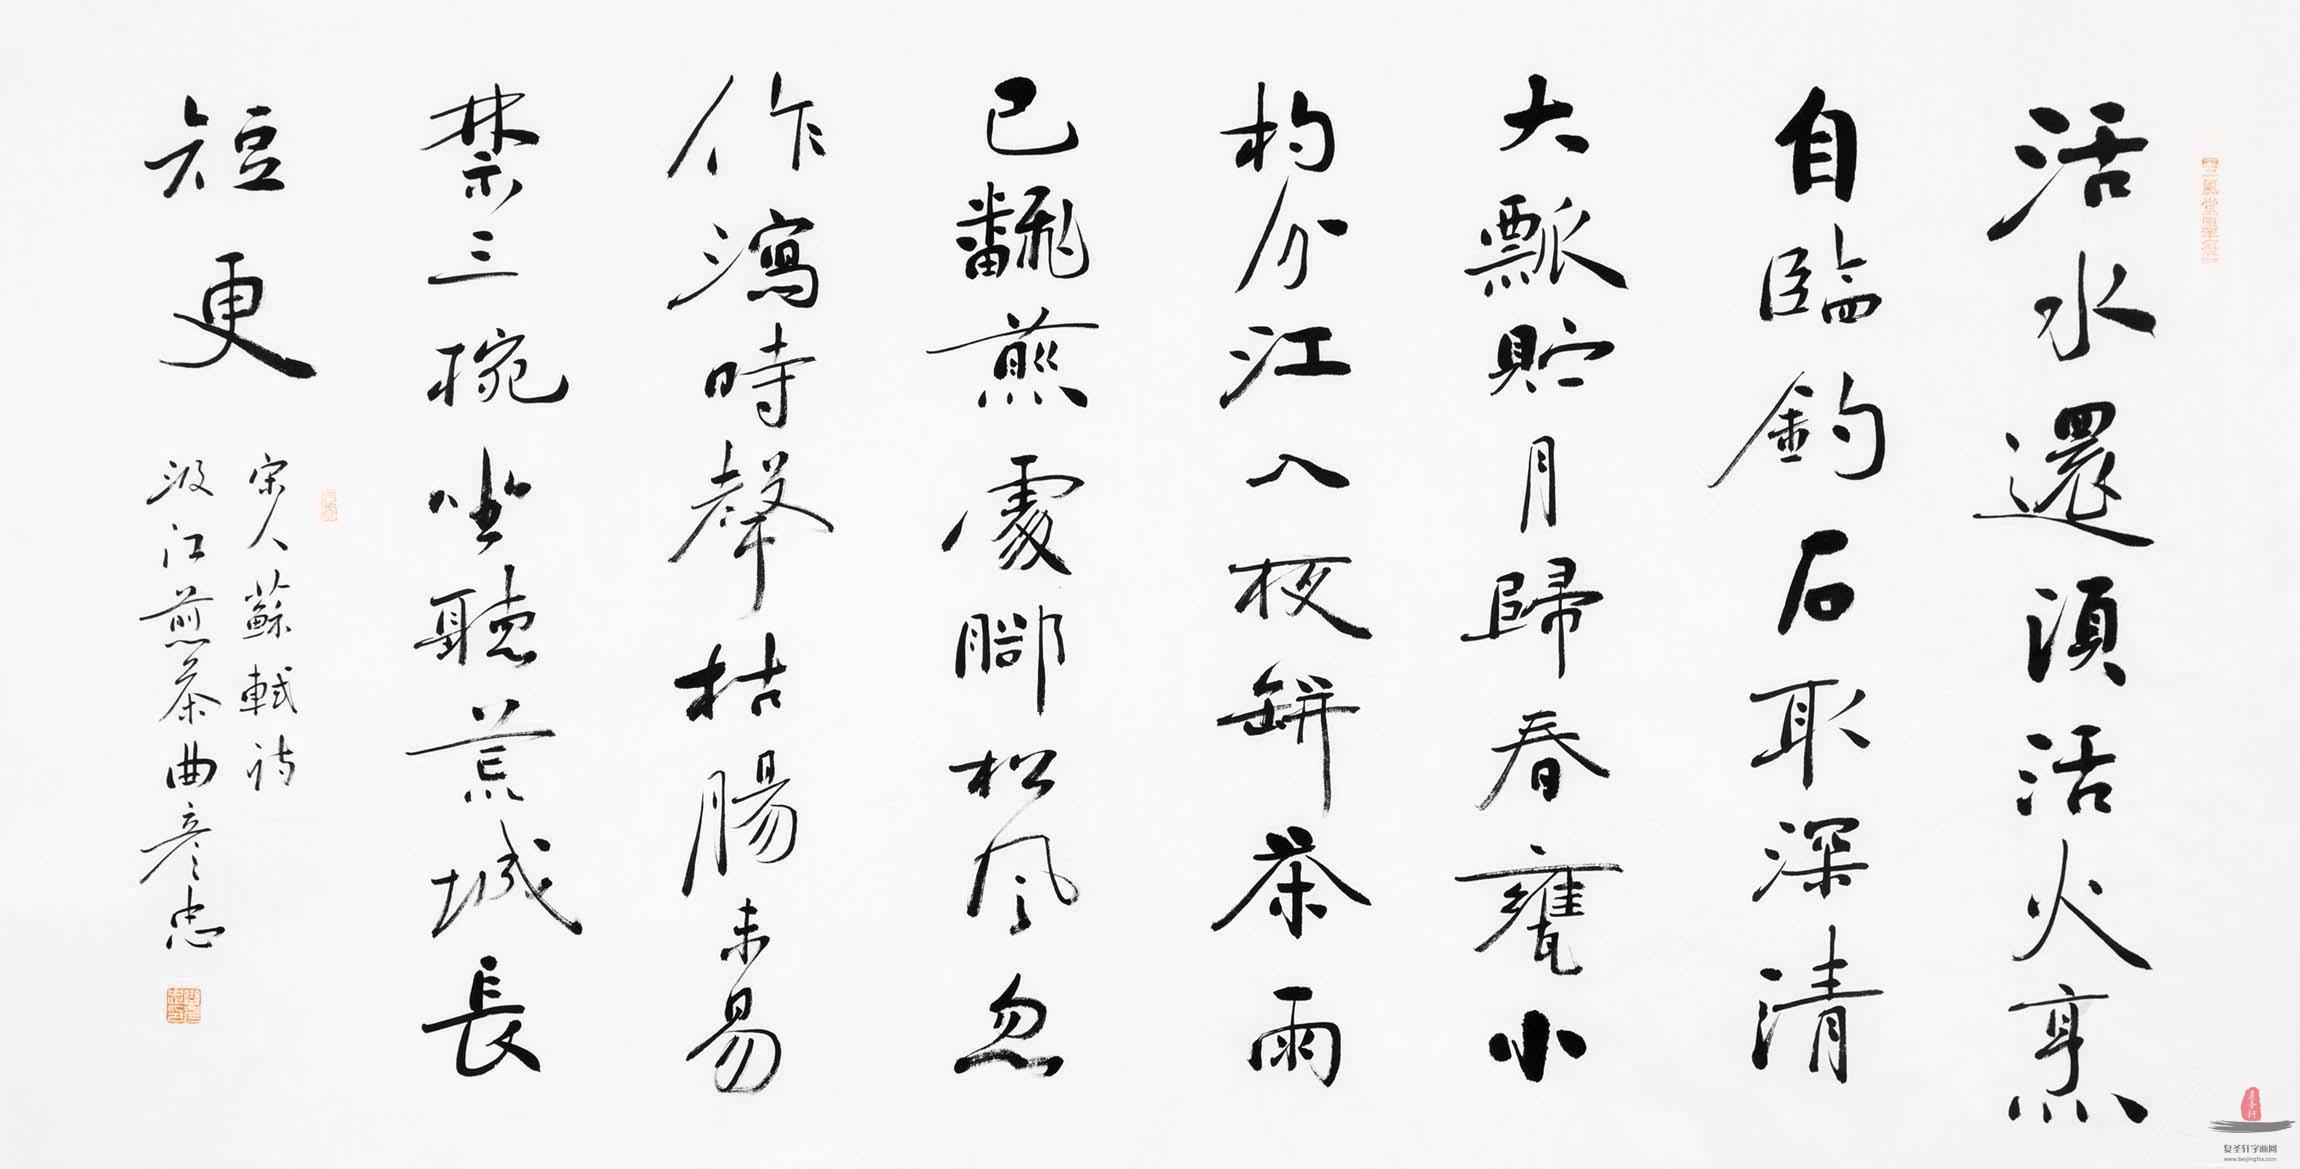 活水還須活火烹
自臨釣石取深清
大瓢貯月歸春甕小
杓分江入夜缾茶雨
已翻煎處腳松風忽
作瀉時聲枯腸未易
禁三椀坐聽荒城長
短更
宋人蘇軾詩
汲江煎茶曲彥忠
复圣轩字画网
www.beijingfsx.com